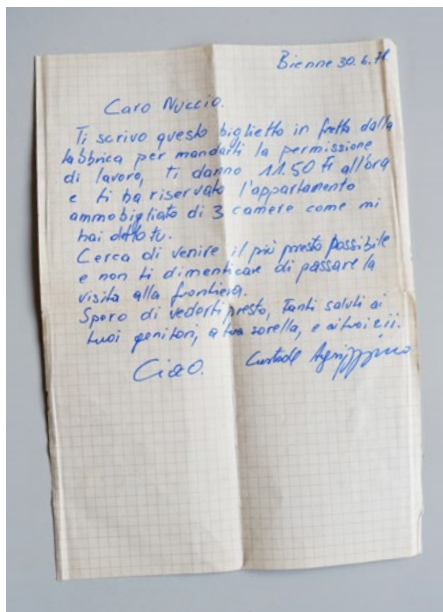 Bienne 30.6.71
Caro Nuccio.
Ti scrivo questo biglietto in fretta dalla
fabbrica per mandarti la permissione
di lavoro, ti danno 11.50 Fr all'ora
e ti ha riservato l'appartamento
ammobigliato di 3 camere come mi
hai detto tu.
Cerca di venire il più presto possibile
e non ti dimenticare di passare la
visita alla frontiera.
Spero di vederti presto, Tanti saluti ai
tuoi genitori, a tua sorella, e ai tuoi zii.
Ciao.